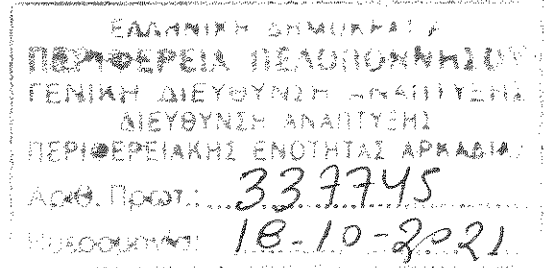 ΕΛΛΗΝΙΚΗ ΔΗΜΟΚΡΑΤΙΑ
ΠΕΡΙΦΕΡΕΙΑ ΠΕΛΟΠΟΝΝΗΣΟΥ
ΓΕΝΙΚΗ ΔΙΕΥΘΥΝΣΗ ΑΝΑΠΤΥΞΗΣ
ΔΙΕΥΘΥΝΣΗ ΑΝΑΠΤΥΞΗΣ
ΠΕΡΙΦΕΡΕΙΑΚΗΣ ΕΝΟΤΗΤΑΣ ΑΡΚΑΔΙΑΣ
Αριθ. Πρωτ.: 337745
Ημερομηνία: 18-10-2021